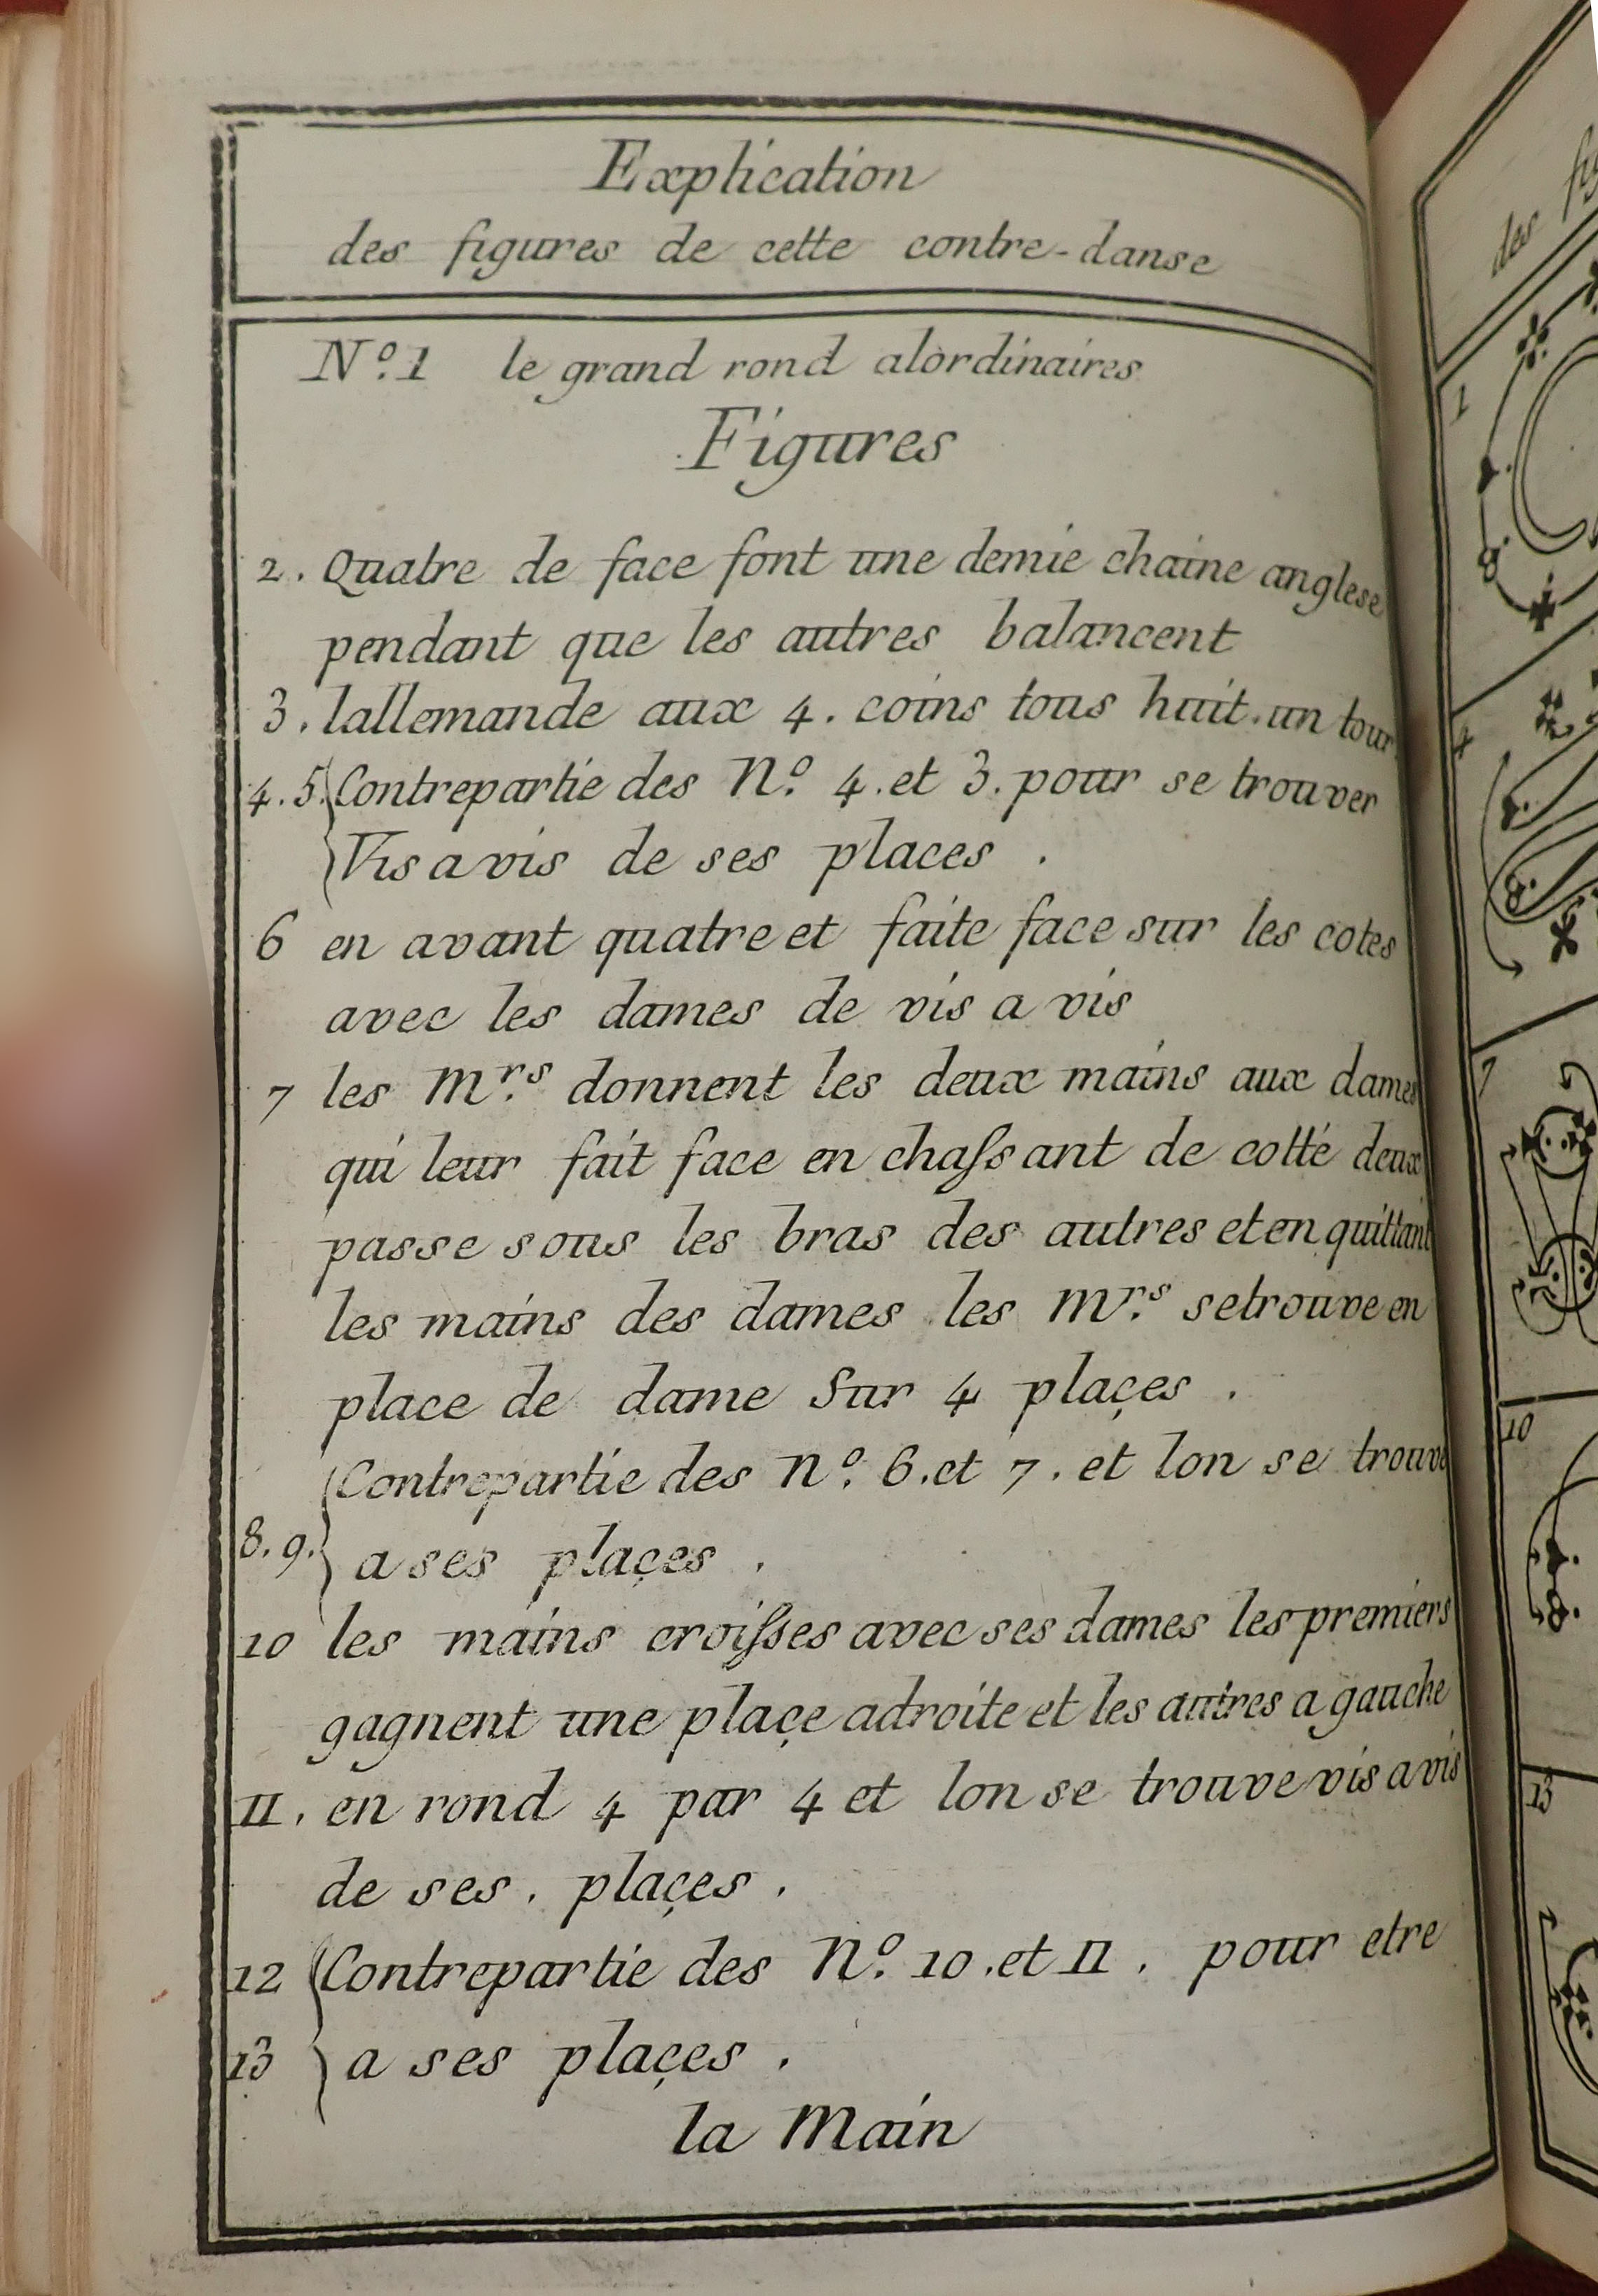 Explication
des figures de cette contre-danse
N.º 1 le grand rond alordinaires
Figures
2. Quatre de face font une demie chaine anglese
pendant que les autres balancent
3. lallemande aux 4. coins tous huit. un tour
4. 5. Contrepartie des N.º 4. et 3. pour se trouver
Vis a vis de ses places .
6 en avant quatre et faite face sur les cotes
avec les dames de vis a vis
7 les M.rs donnent les deux mains aux dames
qui leur fait face en chaſsant de cotté deux
passe sous les bras des autres et en quittant
les mains des dames les M.rs se trouve en
place de dame Sur 4 plaçes .
Contrepartie des N.º 6. et 7. et lon se trouve
8. 9. a ses plaçes .
10 les mains croiſses avec ses dames les premiers
gagnent une plaçe adroite et les autres a gauche
II. en rond 4 par 4 et lon se trouve vis a vis
de ses . plaçes .
12 Contrepartie des N.º 10. et II . pour etre
13 a ses plaçes .
la Main
des fig
1
4
7
10
13